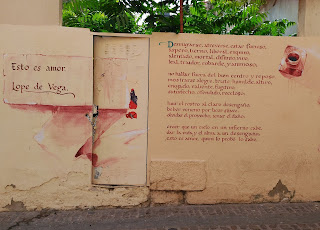 Esto es amor.
Lope de Vega.
Desmayarse, atreverse, estar furioso,
áspero, tierno, liberal, esquivo,
alentado, mortal, difunto, vivo,
leal, traidor, cobarde, y animoso,
no hallar fuera del bien centro y reposo,
mostrarse alegre, triste, humilde, altivo,
enojado, valiente, fugitivo,
satisfecho, ofendido, receloso.
huir el rostro al claro desengaño,
beber veneno por licor suave,
olvidar el provecho, amar el daño.
creer que un cielo en un infierno cabe,
dar la vida y el alma a un desengaño:
esto es amor, quien lo probó lo sabe.